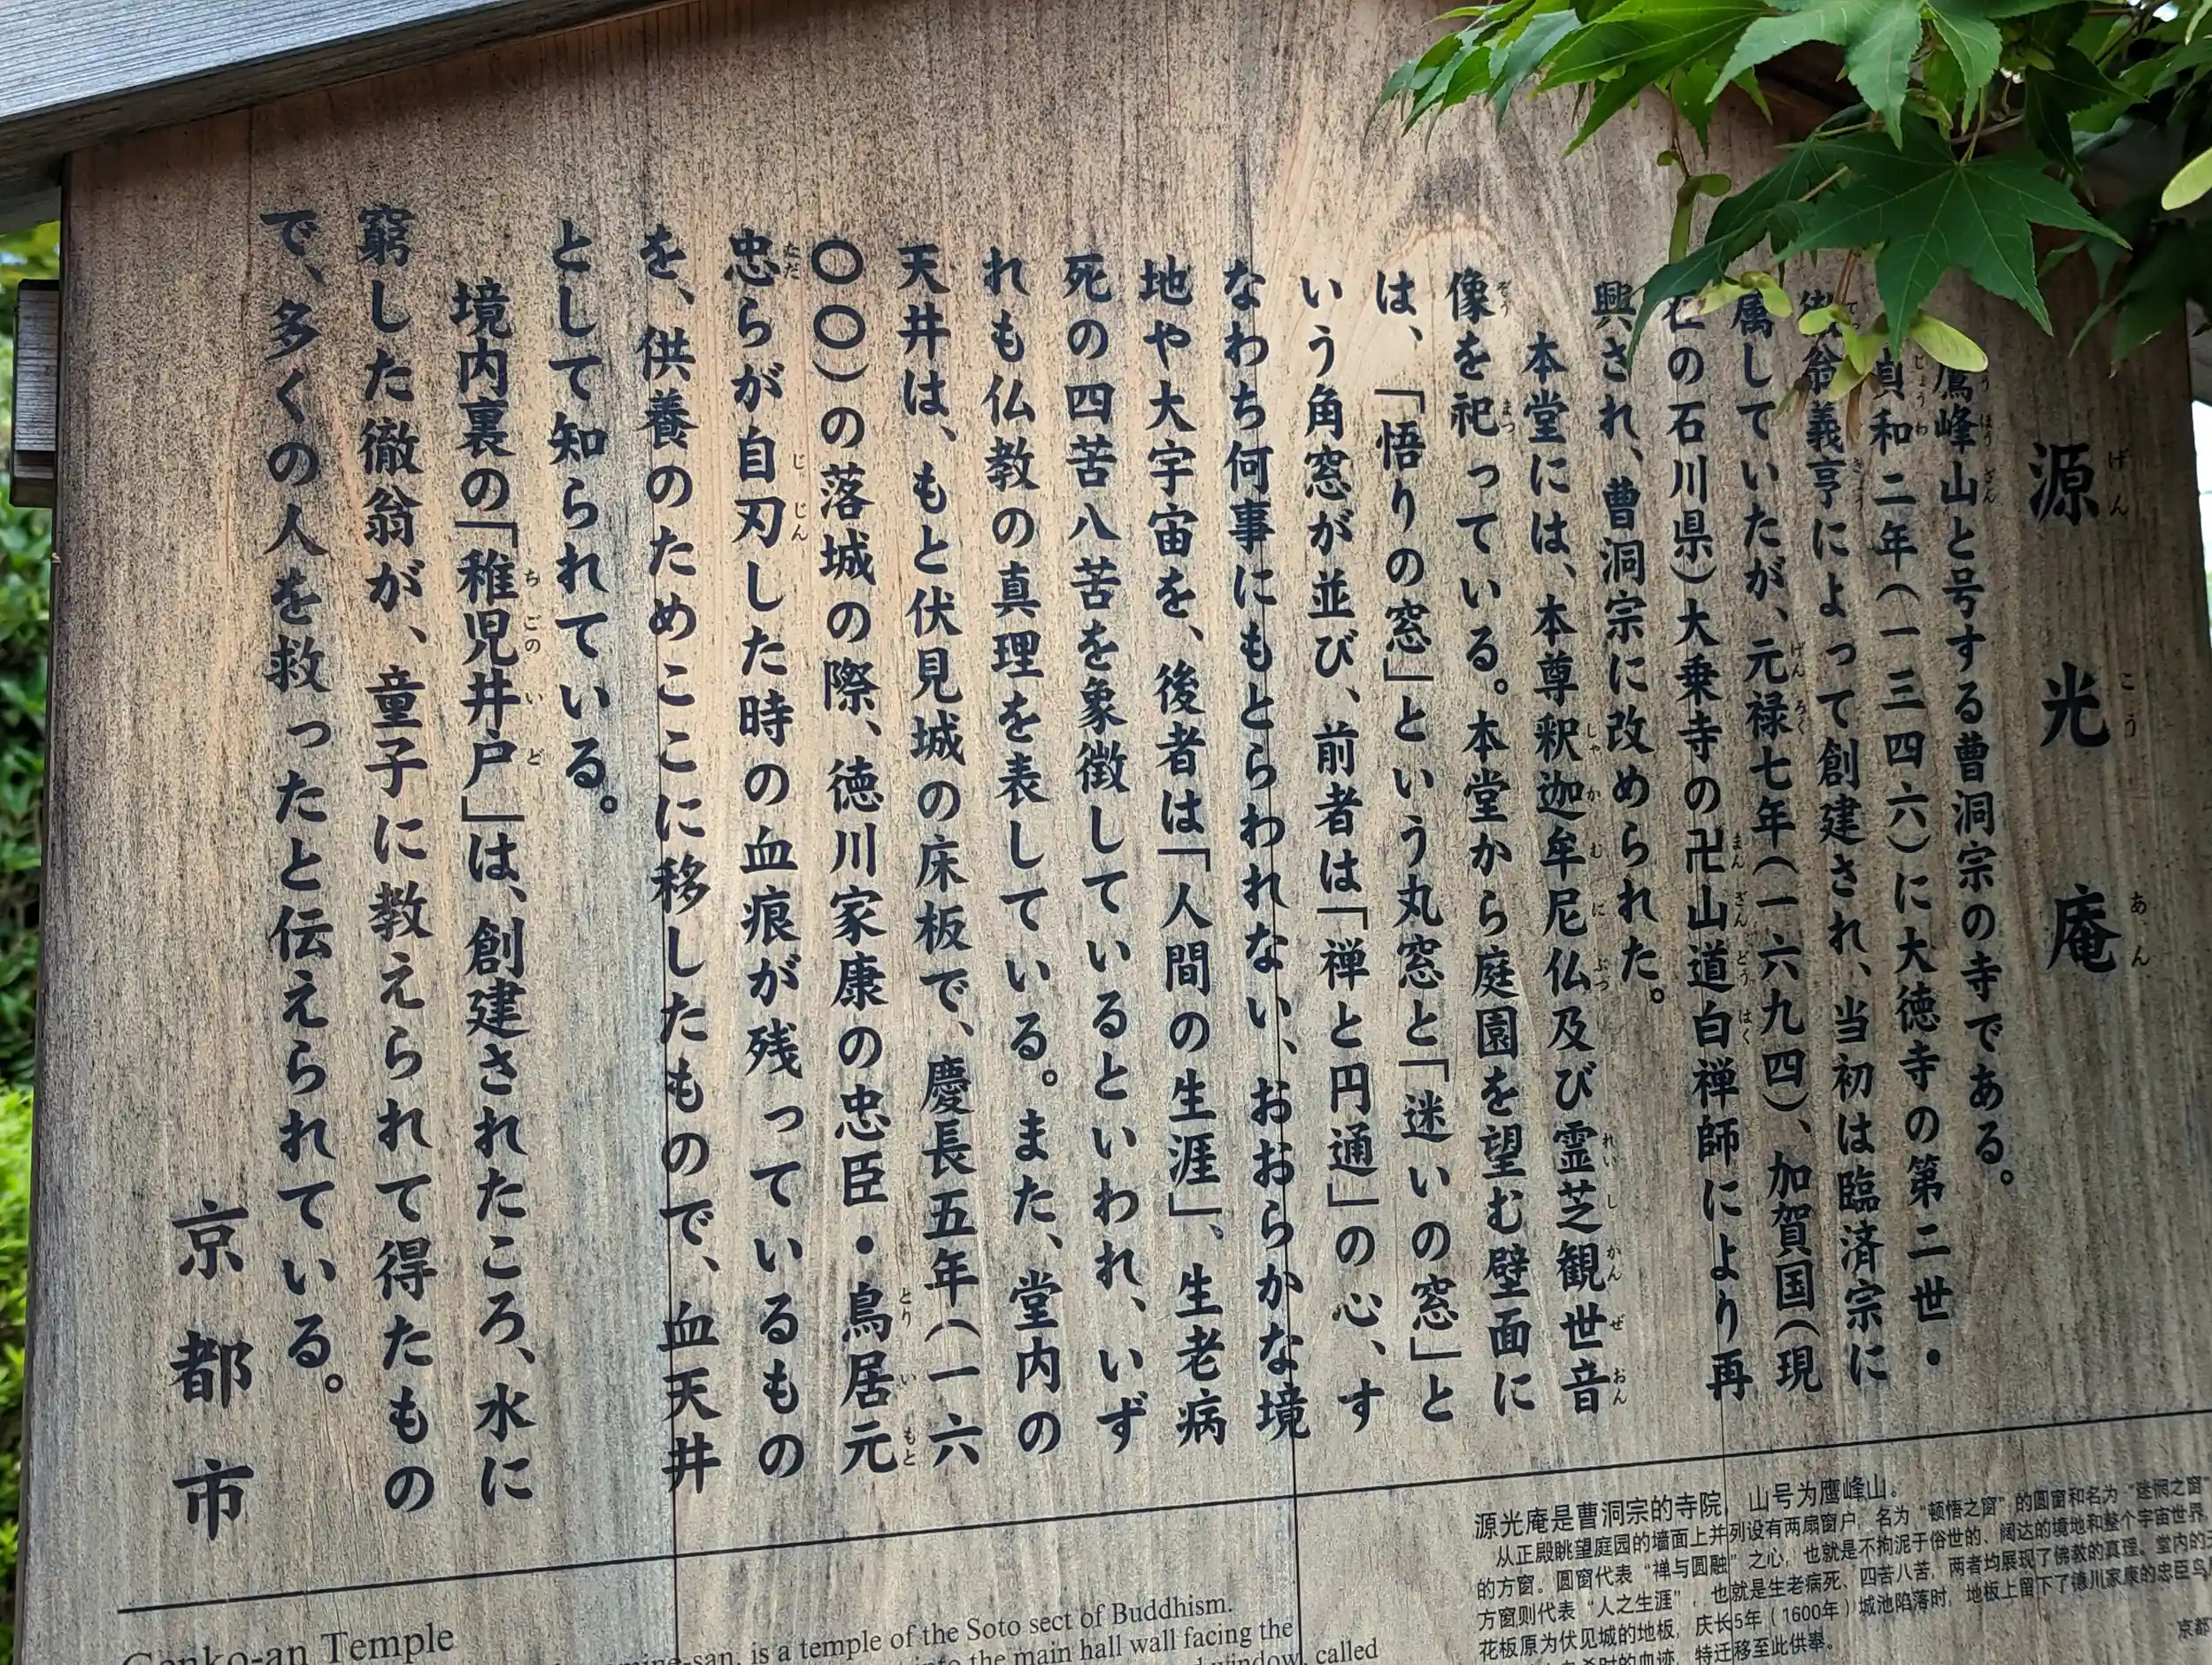 源光庵
げんこうあん
鷹峰山と号する曹洞宗の寺である。
貞和二年(一三四六)に大徳寺の第二世・
翁義亨によって創建され、当初は臨済宗に
属していたが、元禄七年(一六九四)、加賀国(現
の石川県)大乗寺の卍山道白禅師により再
興され、曹洞宗に改められた。
本堂には、本尊釈迦牟尼仏及び霊芝観世音
像を祀っている。本堂から庭園を望む壁面に
は、「悟りの窓」という丸窓と「迷いの窓」と
いう角窓が並び、前者は「禅と円通」の心、す
なわち何事にもとらわれない、おおらかな境
地や大宇宙を、後者は「人間の生涯」、生老病
死の四苦八苦を象徴しているといわれ、いず
れも仏教の真理を表している。また、堂内の
天井は、もと伏見城の床板で、慶長五年(一六
〇〇)の落城の際、徳川家康の忠臣・鳥居元
忠らが自刃した時の血痕が残っているもの
を、供養のためここに移したもので、血天井
として知られている。
境内裏の「稚児井戸」は、創建されたころ、水に
窮した徹翁が、童子に教えられて得たもの
で、多くの人を救ったと伝えられている。
京都市
Genko-an Temple
-san, is a temple of the Soto sect of Buddhism.
into the main hall wall facing the
window, called
源光庵是曹洞宗的寺院，山号为鹰峰山。
从正殿眺望庭园的墙面上并列设有两扇窗户，名为“顿悟之窗”的圆窗和名为“迷惘之窗”
的方窗。圆窗代表“禅与圆融”之心，也就是不拘泥于俗世的、阔达的境地和整个宇宙世界
方窗则代表“人之生涯”，也就是生老病死、四苦八苦，两者均展现了佛教的真理。堂内的天
花板原为伏见城的地板，庆长5年（1600年）城池陷落时，地板上留下了德川家康的忠臣鸟
时的血迹，特迁移至此供奉。
京都